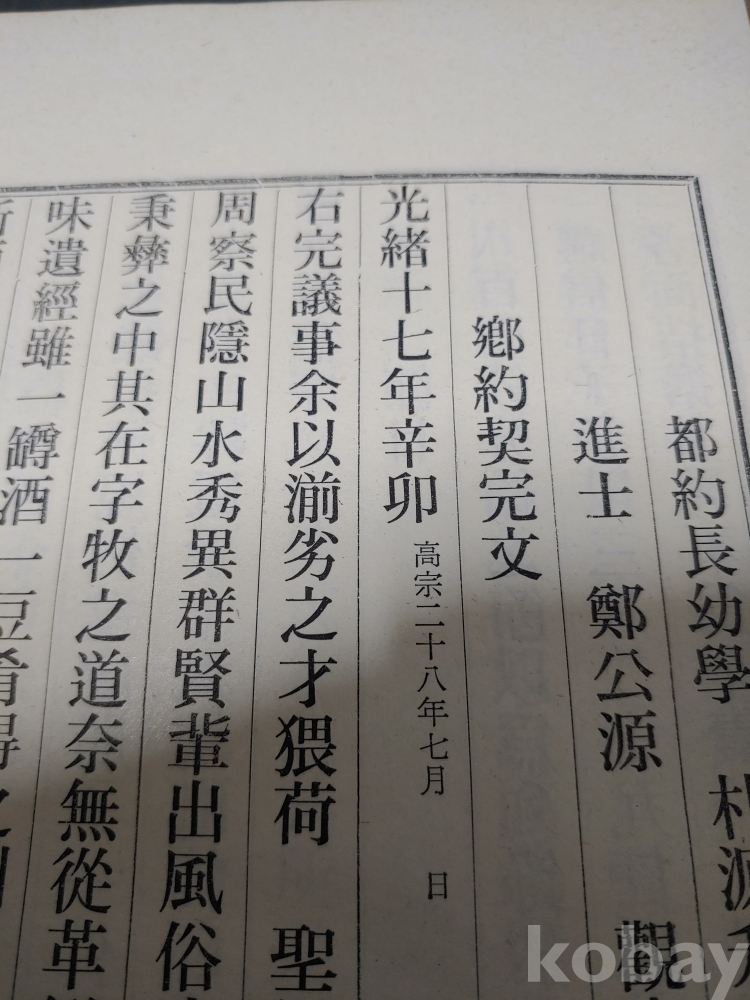 都約長幼學 朴源
進士 鄭公源 觀
鄕約契完文
光緖十七年辛卯 高宗二十八年七月 日
右完議事余以湔劣之才猥荷 聖
周察民隱山水秀異群賢輩出風俗
秉彝之中其在字牧之道奈無從革
味遺經雖一罇酒一豆肴得之
kobay